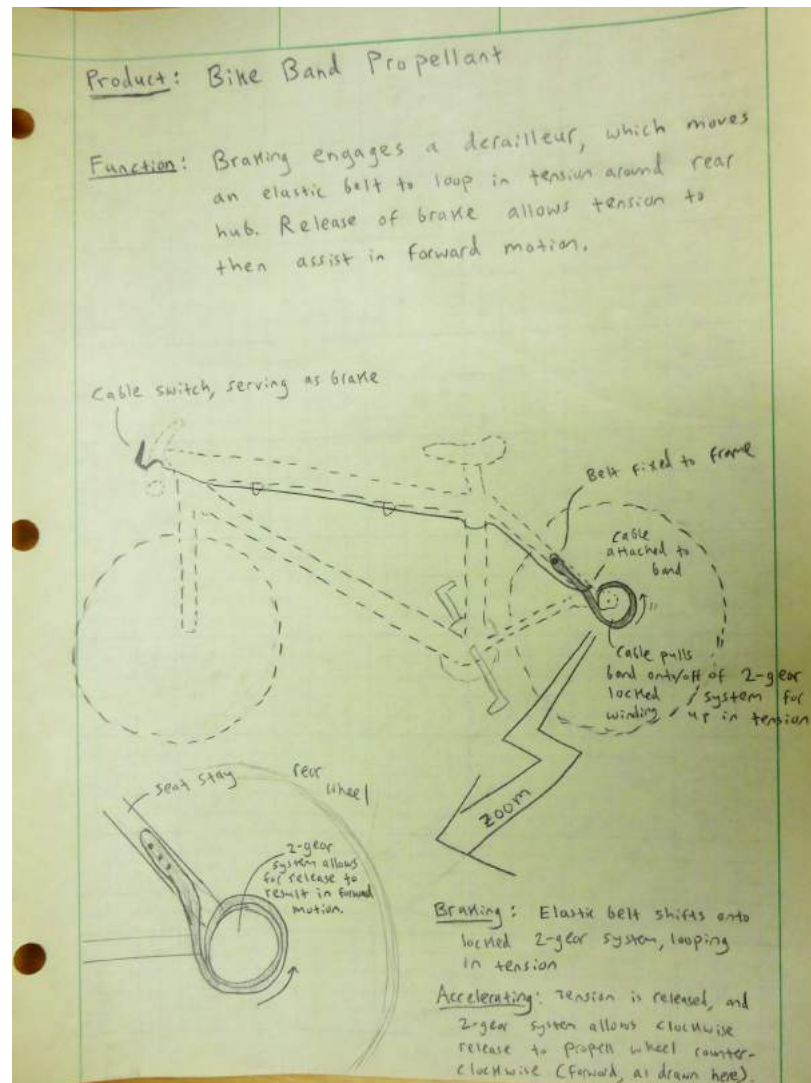 Product: Bike Band Propellant
Function: Braking engages a derailleur, which moves
an elastic belt to loop in tension around rear
hub. Release of brake allows tension to
then assist in forward motion.
Cable switch, serving as brake
Belt fixed to frame
Cable
attached to
band
Cable pulls
band onto/off of 2-gear
locked system for
winding up in tension
ZOOM
seat stay
rear
wheel
2-gear
system allows
for release to
result in forward
motion.
Braking: Elastic belt shifts onto
locked 2-gear system, looping
in tension
Accelerating: Tension is released, and
2-gear system allows clockwise
release to propell wheel counter-
clockwise (forward, as drawn here).